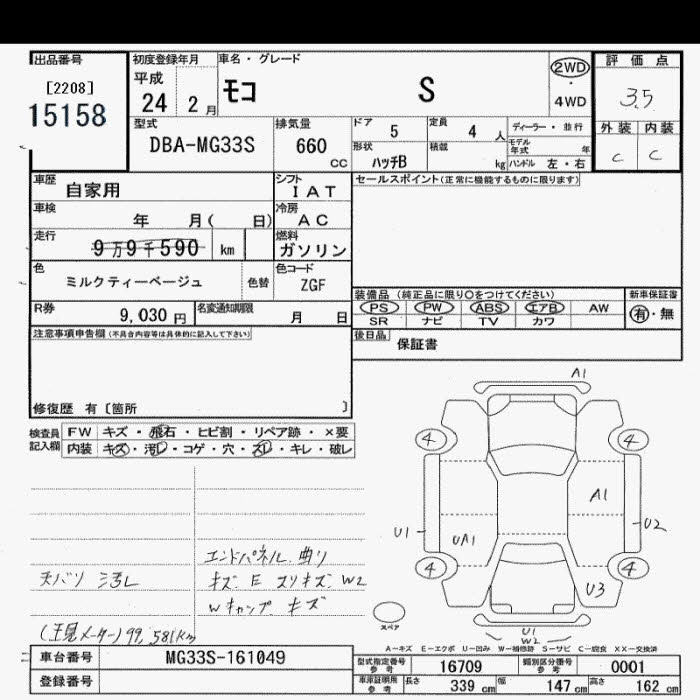 出品番号
[2208]
15158
初度登録年月
平成
24 2 月
車名・グレード
モコ S
2WD
・
4WD
評価点
3.5
外装 内装
C C
型式
DBA-MG33S
排気量
660 CC
ドア 5
定員 4 人
ディーラー・並行
形状 ハッチB
積載 kg
モデル年式 年
ハンドル 左・右
車歴 自家用
シフト IAT
セールスポイント(正常に機能するものに限ります)
車検 年 月( 日)
冷房 AC
走行 9万9千590 km
燃料 ガソリン
色 ミルクティーベージュ 色替
色コード ZGF
装備品 (純正品に限り〇をつけてください)
新車保証書
PS PW ABS エアB AW
有・無
SR ナビ TV カワ
R券 9,030 円
名変通知期限 月 日
後日品 保証書
注意事項申告欄(不具合内容等は具体的に記入して下さい)
修復歴 有〔箇所 〕
検査員記入欄
FW キズ・飛石・ヒビ割・リペア跡・×要
内装 キズ・汚レ・コゲ・穴・スレ・キレ・破レ
エンドパネル 曲り
天バリ 汚レ
キズ E スリキズ W2
Wキャップ キズ
(現メーター)99,581km
A1
4 4
A1
U1 UA1 U2
4 4
U3
スペア
U1
W2
A-キズ E-エクボ U-凹み W-補修跡 S-サビ C-腐食 XX-交換済
車台番号 MG33S-161049
登録番号
型式指定番号 参考 16709
類別区分番号 参考 0001
車庫証明用 参考 長さ 339 cm 幅 147 cm 高さ 162 cm